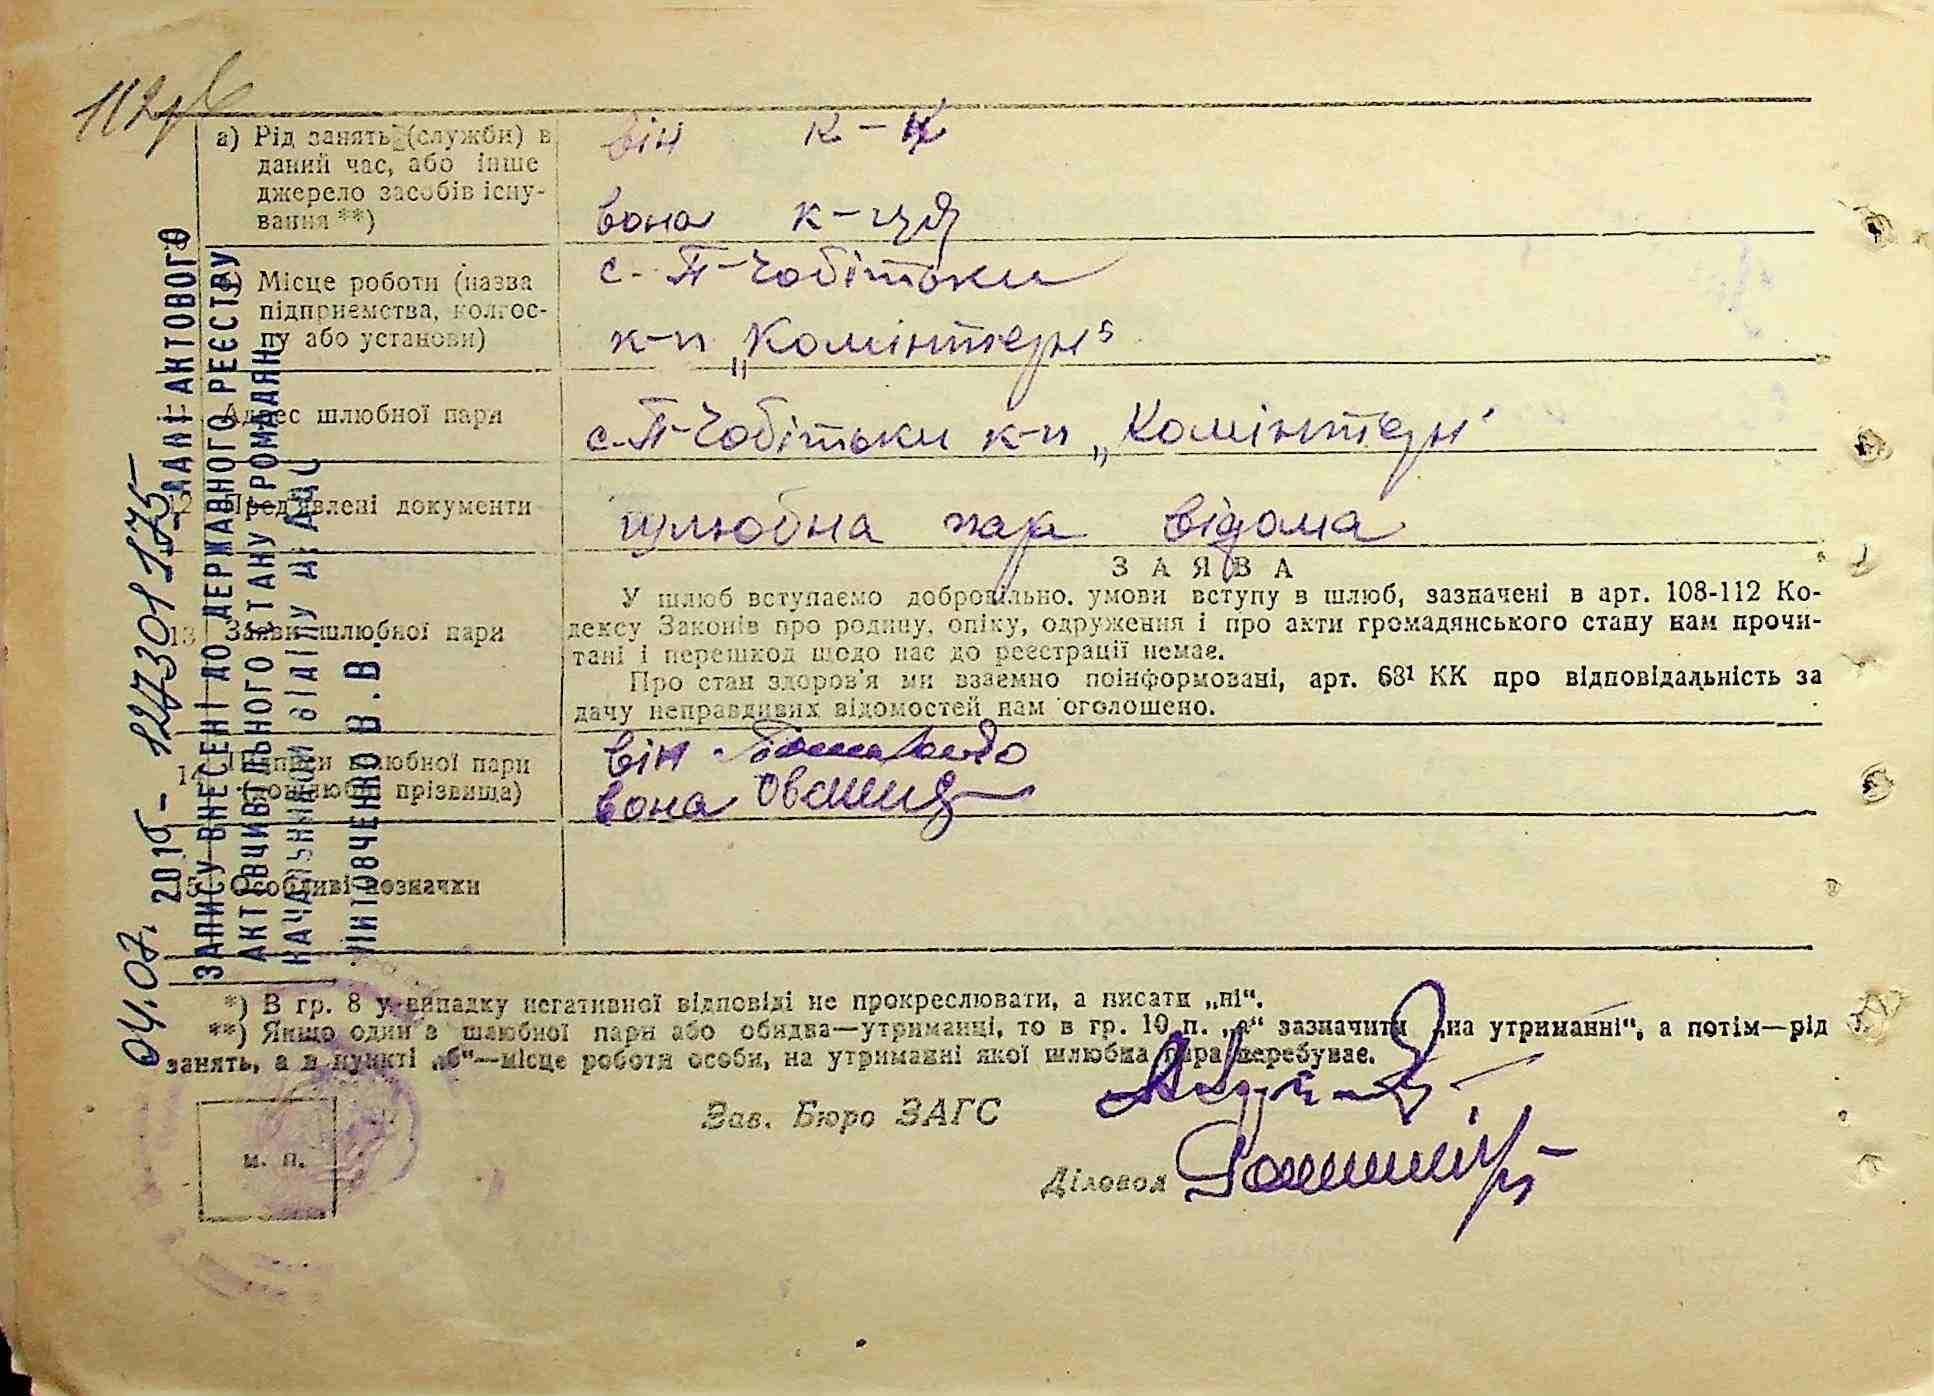 112
а) Рід занять (служби) в
даний час, або інше
джерело засобів існу-
вання **)
він к-к
вона к-ця
Місце роботи (назва
підприємства, колгос-
пу або установи)
с. П-Чобітьки
к-п „Комінтерн"
11 Адрес шлюбної пари
с. П-Чобітьки к-п „Комінтерн"
12 Пред'явлені документи
шлюбна пара відома
13 Заяви шлюбної пари
ЗАЯВА
У шлюб вступаємо добровільно. умови вступу в шлюб, зазначені в арт. 108-112 Ко-
дексу Законів про родину, опіку, одруження і про акти громадянського стану нам прочи-
тані і перешкод щодо нас до реєстрації немає.
Про стан здоров'я ми взаємно поінформовані, арт. 68¹ КК про відповідальність за
дачу неправдивих відомостей нам оголошено.
14 Підписи шлюбної пари
(дошлюбні прізвища)
він
вона
15 Особливі позначки
*) В гр. 8 у випадку негативної відповіді не прокреслювати, а писати „ні“.
**) Якщо один з шлюбної пари або обидва—утриманці, то в гр. 10 п. „а“ зазначити „на утриманні“, а потім—рід
занять, а в пункті „б“—місце роботи особи, на утриманні якої шлюбна пара перебуває.
Зав. Бюро ЗАГС
Діловод
м. п.
04.07. 2015 - ДАНІ АКТОВОГО
ЗАПИСУ ВНЕСЕНІ ДО ДЕРЖАВНОГО РЕЄСТРУ
АКТІВ ЦИВІЛЬНОГО СТАНУ ГРОМАДЯН
НАЧАЛЬНИКОМ ВІДІЛУ ДРАЦС
Литовченко В.В.